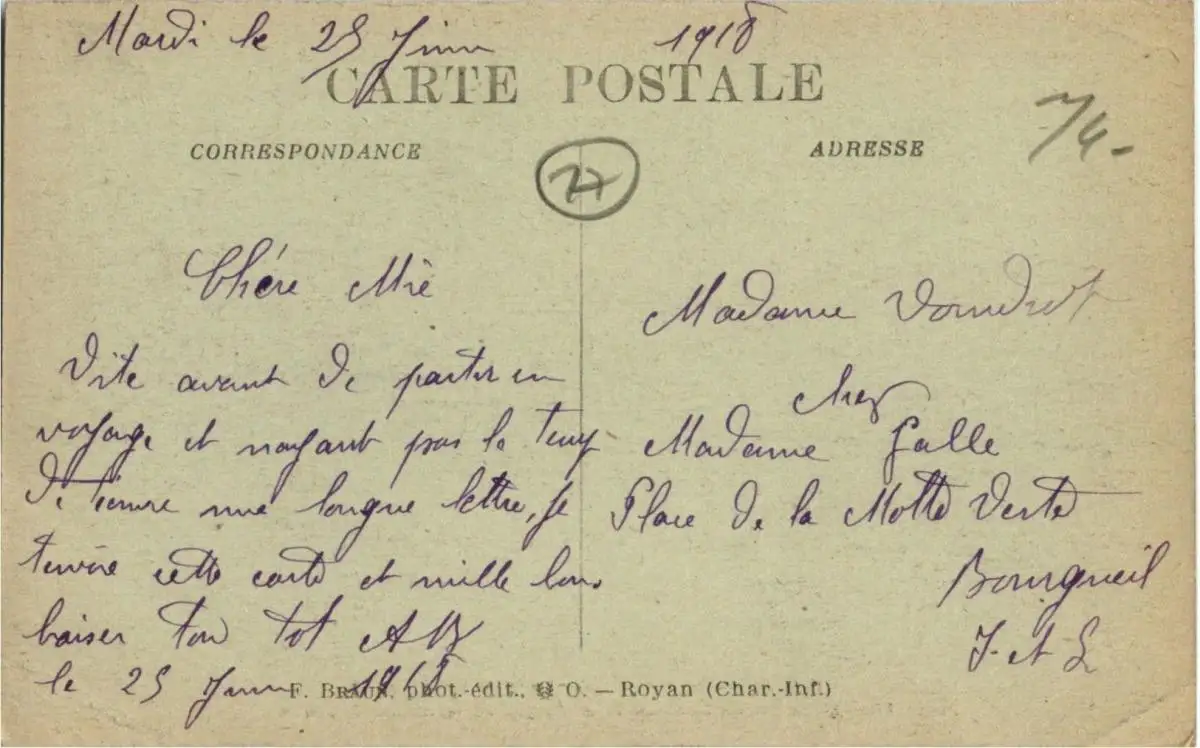 Mardi le 25 Juin 1918
CARTE POSTALE
CORRESPONDANCE
ADRESSE
74-
27
Chére Mie
Vite avant de partir en
voyage et nayant pas le temp
de técrire une longue lettre, je
tenvoie cette carte et mille bons
baiser ton tot
le 25 Juin 1918
Madame
chez
Madame Galle
Place de la Motte Verte
Bourgueil
I. et L
F. BRAUN, phot.-édit., O. — Royan (Char.-Inf.)